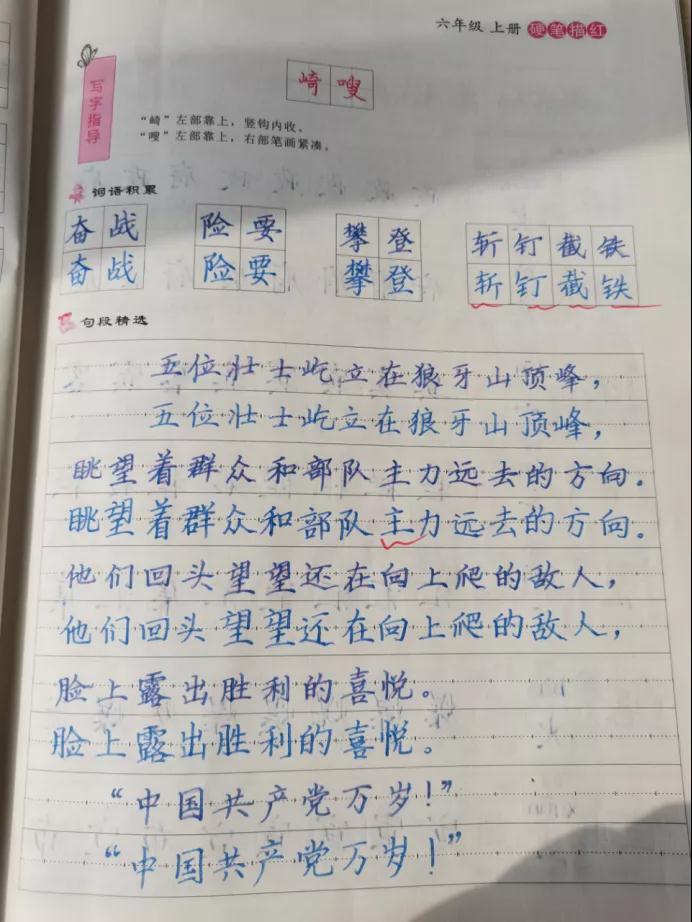 六年级 上册 硬笔描红
崎嗖
写字指导
“崎”左部靠上，竖钩内收。
“嗖”左部靠上，右部笔画紧凑。
词语积累
奋战 险要 攀登 斩钉截铁
奋战 险要 攀登 斩钉截铁
句段精选
五位壮士屹立在狼牙山顶峰，
五位壮士屹立在狼牙山顶峰，
眺望着群众和部队主力远去的方向。
眺望着群众和部队主力远去的方向。
他们回头望望还在向上爬的敌人，
他们回头望望还在向上爬的敌人，
脸上露出胜利的喜悦。
脸上露出胜利的喜悦。
“中国共产党万岁！”
“中国共产党万岁！”